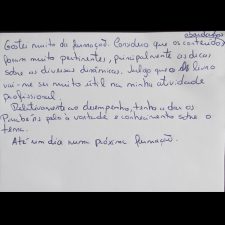 abordados
Gostei muito da formação. Considero que os conteúdos
foram muito pertinentes, principalmente as dicas
sobre as diversas dinâmicas. Julgo que o livro
vai-me ser muito útil na minha atividade
profissional.
Relativamente ao desempenho, tenho a dar os
Parabéns pelo à vontade e conhecimento sobre o
tema.
Até um dia numa próxima formação.